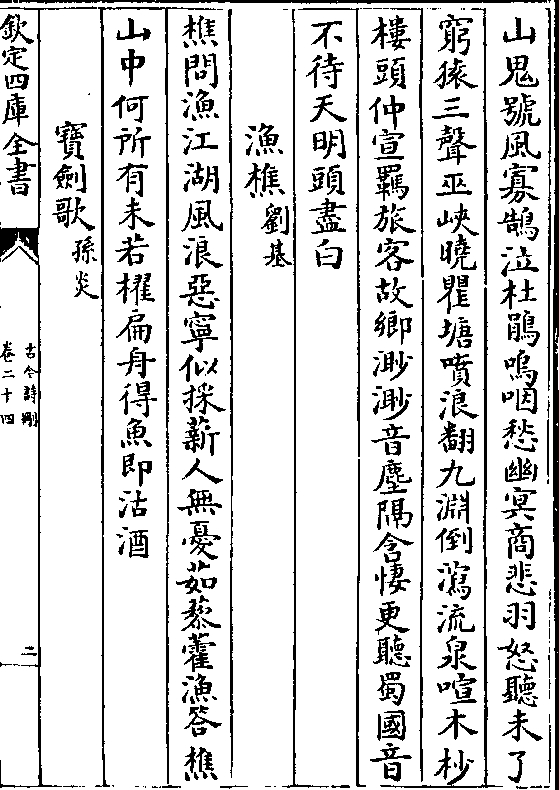 山鬼號風寡鵠泣杜鵑嗚咽愁幽冥商悲羽怒聽未了
窮猿三聲巫峽曉瞿塘噴浪翻九淵倒瀉流泉喧木杪
樓頭仲宣羈旅客故鄉渺渺音塵隔含悽更聽蜀國音
不待天明頭盡白
漁樵劉基
樵問漁江湖風浪惡寧似採薪人無憂茹藜藿漁答樵
山中何所有未若櫂扁舟得魚即沽酒
寶劍歌孫炎
欽定四庫全書
古今詩刪
卷二十四
二